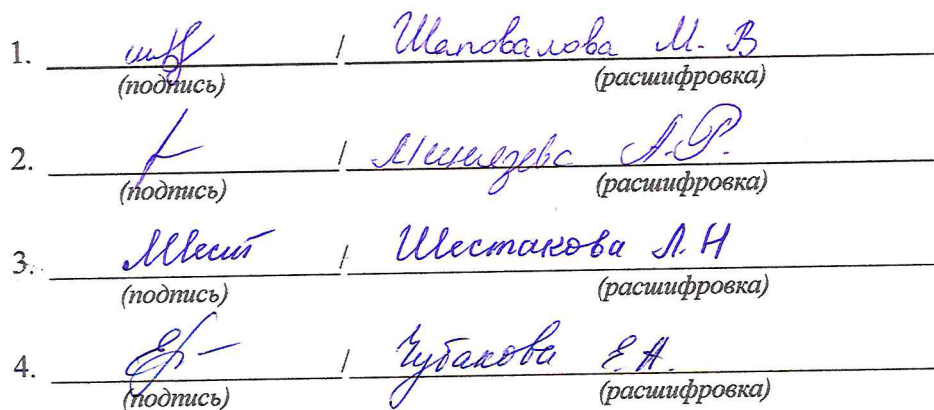 1. / Шаповалова М. В
(подпись) (расшифровка)
2. / А.Р.
(подпись) (расшифровка)
3. / Шестакова Л.Н
(подпись) (расшифровка)
4. / Чубакова Е.А.
(подпись) (расшифровка)